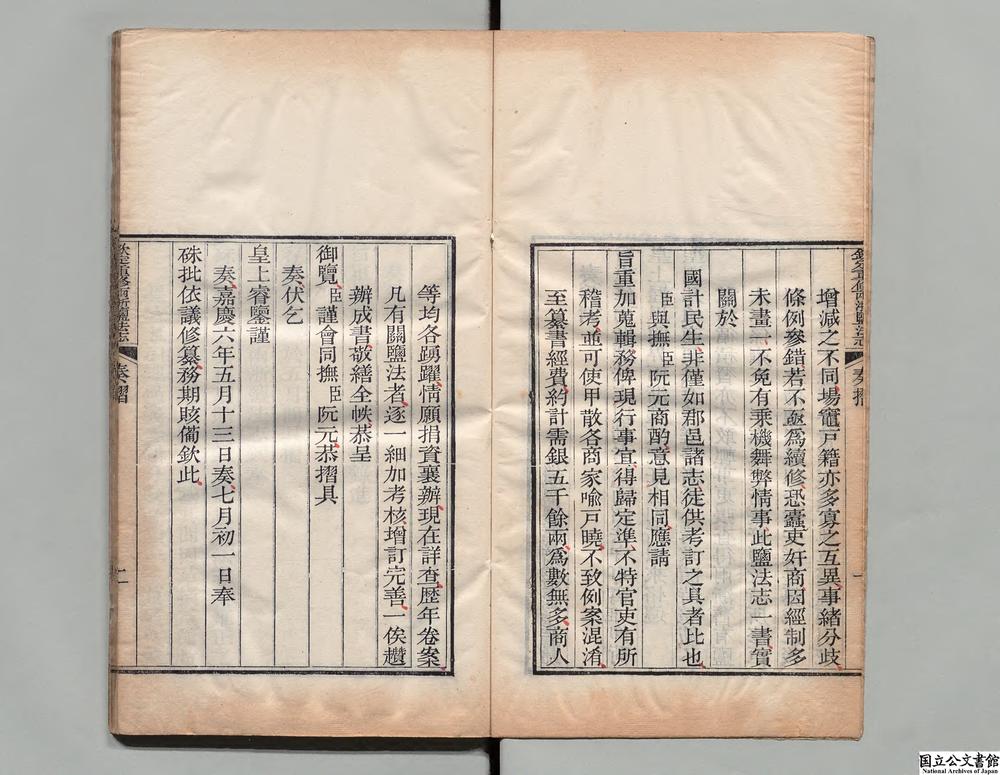 增減之不同場竈戸籍亦多寡之互異事緒分歧
條例參錯若不亟為續修恐蠹吏奸商因經制多
未畫一不免有乘機舞弊情事此鹽法志一書實
關於
國計民生非僅如郡邑諸志徒供考訂之具者比也
臣與撫臣阮元商酌意見相同應請
旨重加蒐輯務俾現行事宜得歸定準不特官吏有所
稽考並可使甲散各商家喻戸曉不致例案混淆
至纂書經費約計需銀五千餘兩為數無多商人
奏摺
一
等均各踴躍情願捐資襄辦現在詳查歷年卷案
凡有關鹽法者逐一細加考核增訂完善一俟趲
辦成書敬繕全帙恭呈
御覽臣謹會同撫臣阮元恭摺具
奏伏乞
皇上睿鑒謹
奏嘉慶六年五月十三日奏七月初一日奉
硃批依議修纂務期賅備欽此
奏摺
二
国立公文書館
National Archives of Japan